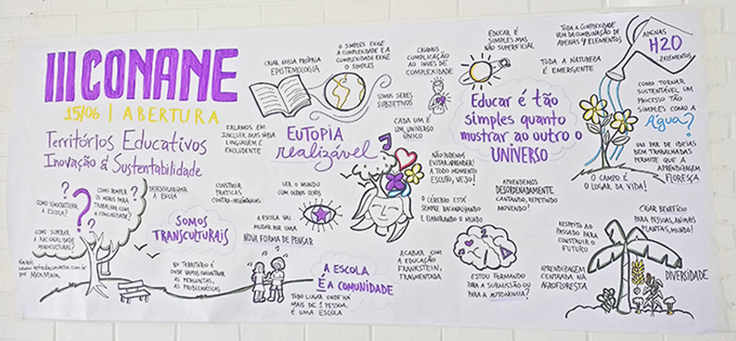 III CONANE
15/06 | ABERTURA
Territórios Educativos
Inovação & Sustentabilidade
CRIAR NOSSA PRÓPRIA
EPISTEMOLOGIA
O SIMPLES EXIGE
A COMPLEXIDADE E A
COMPLEXIDADE EXIGE
O SIMPLES
SOMOS SERES
SUBJETIVOS
CRIAMOS
COMPLICAÇÃO
AO INVÉS DE
COMPLEXIDADE
EDUCAR É
SIMPLES MAS
NÃO SUPERFICIAL
TODA A COMPLEXIDADE
VEM DA COMBINAÇÃO DE
APENAS 4 ELEMENTOS
TODA A NATUREZA
É EMERGENTE
APENAS
H2O
2 ELEMENTOS
FALAMOS EM
INCLUIR MAS NOSSA
LINGUAGEM É
EXCLUDENTE
EUTOPIA
realizável
CADA UM É
UM UNIVERSO
ÚNICO
Educar é tão
simples quanto
mostrar ao outro o
UNIVERSO
COMO TORNAR
SUSTENTÁVEL UM
PROCESSO TÃO
SIMPLES COMO A
Água?
UM PAR DE IDEIAS
BEM TRABALHADAS
PERMITE QUE A
APRENDIZAGEM
FLORESÇA
O CAMPO É O
LUGAR DA VIDA!
NÃO PODEMOS
EVITAR APRENDER!
A TODO MOMENTO
ESCUTO, VEJO!
O CÉREBRO ESTÁ
SEMPRE
E ELABORANDO O MUNDO
APRENDEMOS
DESORDENADAMENTE
CANTANDO, REPETINDO
MOVENDO!
COMO
A ESCOLA?
COMO ROMPER
OS MUROS PARA
TRABALHAR COM
A COMUNIDADE?
A ESCOLA
COMO SUPERAR
A RACIONALIDADE
CONSTRUIR
PRÁTICAS
CONTRA-HEGEMÔNICAS
SOMOS
TRANSCULTURAIS
VER O MUNDO
COM OUTROS OLHOS
A ESCOLA VAI
MUDAR POR UMA
NOVA FORMA DE PENSAR
O TERRITÓRIO É
ONDE VAMOS ENCONTRAR
AS PERGUNTAS,
AS PROBLEMÁTICAS
A ESCOLA
É A COMUNIDADE
TODO LUGAR ONDE HÁ
MAIS DE 1 PESSOA,
É UMA ESCOLA
ACABAR COM
A EDUCAÇÃO
FRANKSTEIN,
FRAGMENTADA
ESTOU FORMANDO
PARA A SUBMISSÃO OU
PARA A AUTONOMIA?
RESPEITO AO
PASSADO PARA
CONSTRUIR O
FUTURO
APRENDIZAGEM
CENTRADA NA
AGROFLORESTA
CRIAR BENEFÍCIO
PARA PESSOAS, ANIMAIS
PLANTAS, MUNDO!
DIVERSIDADE